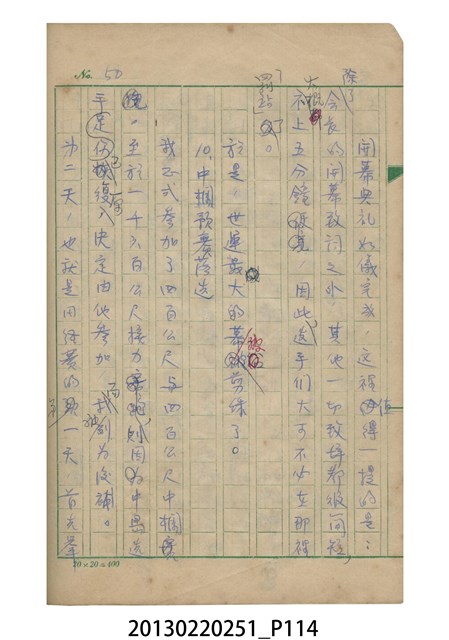 No. 50
開幕典禮如儀完成,這裡值得一提的是:
除了會長的開幕致詞之外,其他一切致詞都很簡短,
大概不上五分鐘,因此選手們大可不必在那裡
「罰站」了。
於是,世運最大的幕剪綵了。
10.中欄預賽落選
我正式參加了四百公尺與四百公尺中欄
,至於一千六百公尺接力則因為中愚選
手足傷已復,決定由他參加,而我則為後補。
第二天,也就是開始賽的第一天,首先舉
20×20=400
20130220251_P114